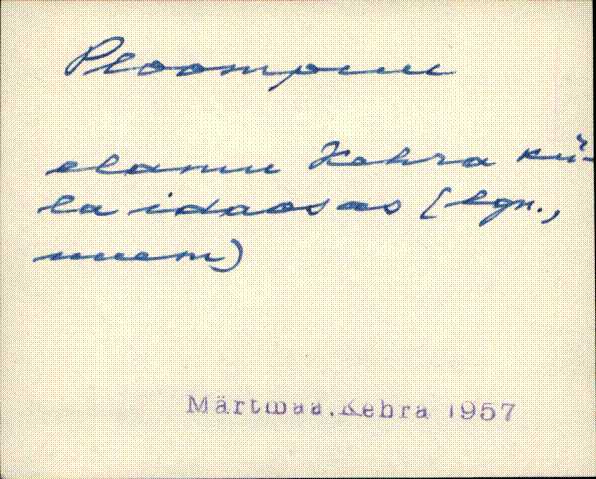 Ploompuu
elamu Kehra kü-
la idaosas (lgn.,
uuem)
Märtmaa, Kehra 1957